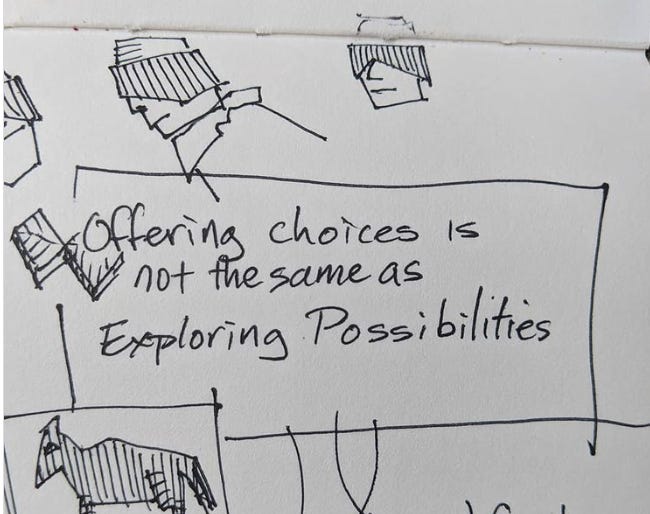 Offering choices is
not the same as
Exploring Possibilities